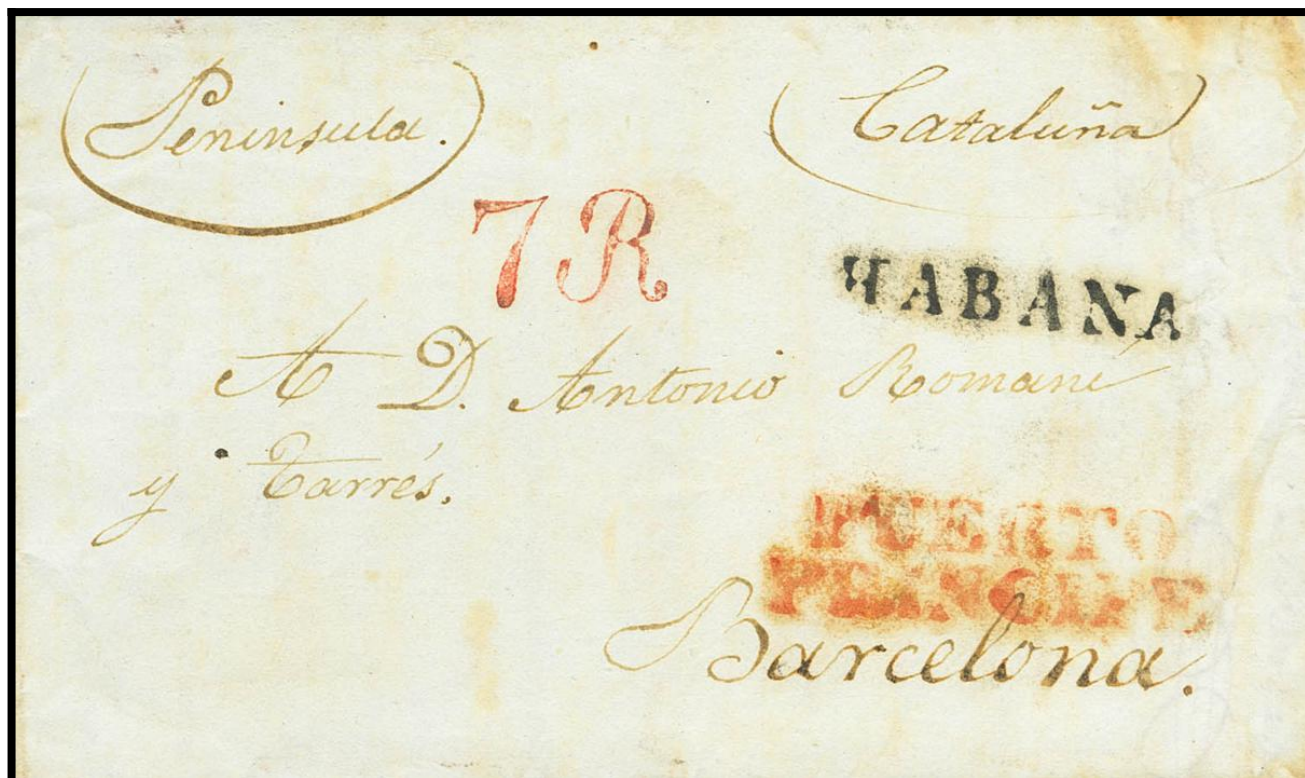 Peninsula.
Cataluña
7R
HABANA
A D. Antonio Romani
y Tarrés.
PUERTO
PRINCIPE
Barcelona.